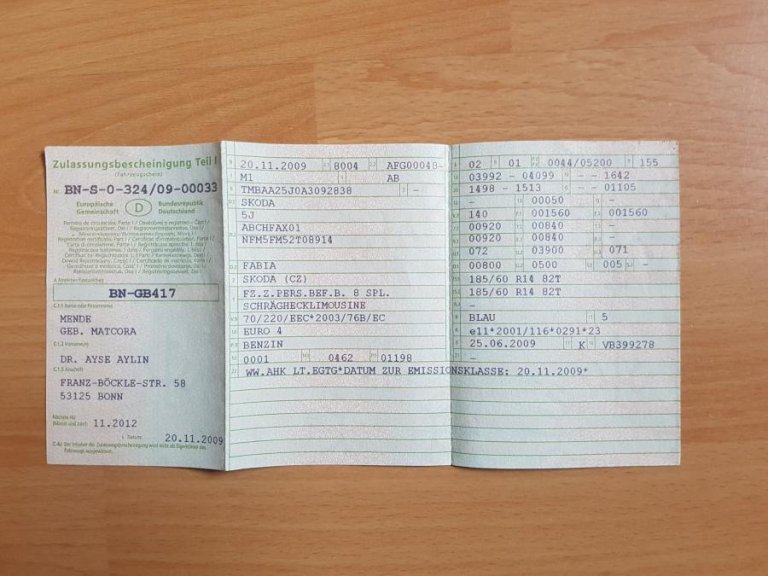 Zulassungsbescheinigung Teil I
(Fahrzeugschein)
Nr. BN-S-O-324/09-00033
Europäische Gemeinschaft
D
Bundesrepublik Deutschland
BN-GB417
C.1.1 Name oder Firmenname
MENDE
GEB. MATCORA
C.1.2 Vorname(n)
DR. AYSE AYLIN
C.1.3 Anschrift
FRANZ-BÖCKLE-STR. 58
53125 BONN
Nächste HU
(Monat und Jahr) 11.2012
I Datum: 20.11.2009
20.11.2009 8004 AFG00048-
M1 AB
TMBAA25J0A3092838 -
SKODA
5J
ABCHFAX01
NFM5FM52T08914
FABIA
SKODA (CZ)
FZ.Z.PERS.BEF.B. 8 SPL.
SCHRÄGHECKLIMOUSINE
70/220/EEC*2003/76B/EC
EURO 4
BENZIN
0001 0462 01198
WW.AHK LT.EGTG*DATUM ZUR EMISSIONSKLASSE: 20.11.2009*
02 01 0044/05200 155
03992 - 04099 - - 1642
1498 - 1513 - - 01105
- 00050 -
140 001560 001560
00920 00840 -
00920 00840 -
072 03900 071
00800 0500 005 -
185/60 R14 82T
185/60 R14 82T
-
BLAU 5
e11*2001/116*0291*23
25.06.2009 K VB399278
-